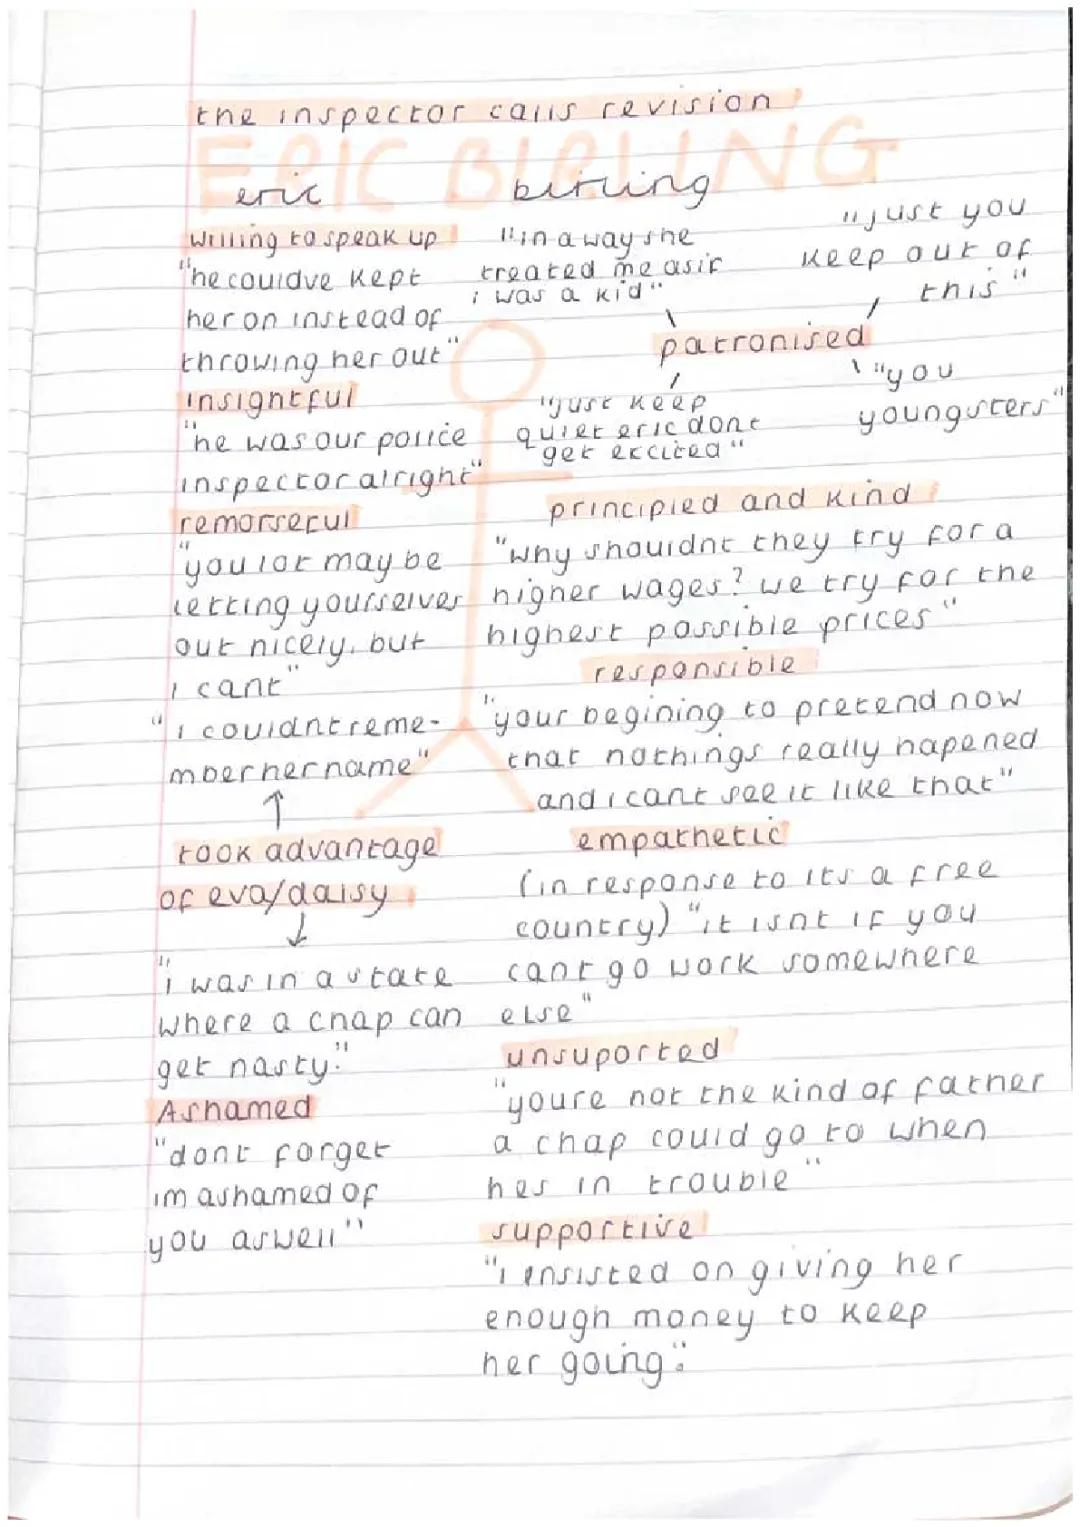 the inspector calls revision
ERIC BIRLING
eric birling
willing to speak up
"he couldve kept
her on instead of
throwing her out"
insightful
"he was our police
inspector alright"
remorseful
"you lot may be
letting yourselves
out nicely, but
i cant"
"i couldnt reme-
mber her name"
↑
took advantage
of eva/daisy
↓
"i was in a state
where a chap can
get nasty."
Ashamed
"dont forget
im ashamed of
you aswell"
"in a way she
treated me as if
i was a kid"
"just you
keep out of
this"
patronised
"just keep
quiet eric dont
get excited"
"you
youngsters"
principled and kind
"why shouldnt they try for a
higher wages? we try for the
highest possible prices"
responsible
"your begining to pretend now
that nothings really hapened
and i cant see it like that"
empathetic
(in response to its a free
country) "it isnt if you
cant go work somewhere
else"
unsuported
"youre not the kind of father
a chap could go to when
hes in trouble"
supportive
"i insisted on giving her
enough money to keep
her going."